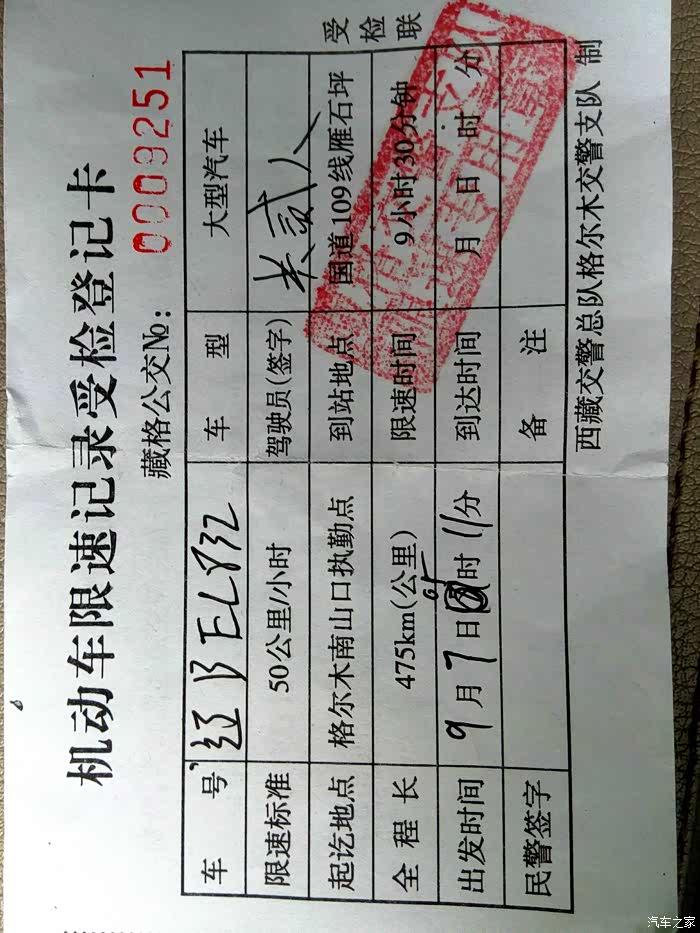 机动车限速记录受检登记卡
藏格公交№: 0009251
车 号 EL832 车 型 大型汽车
限速标准 50公里/小时 驾驶员(签字) 共贰人
起讫地点 格尔木南山口执勤点 到站地点 国道109线雁石坪
全 程 长 475km(公里) 限速时间 9小时30分钟
出发时间 9月7日 时11分 到达时间 月 日 时 分
民警签字 备 注
西藏交警总队格尔木交警支队 制
受检联
汽车之家